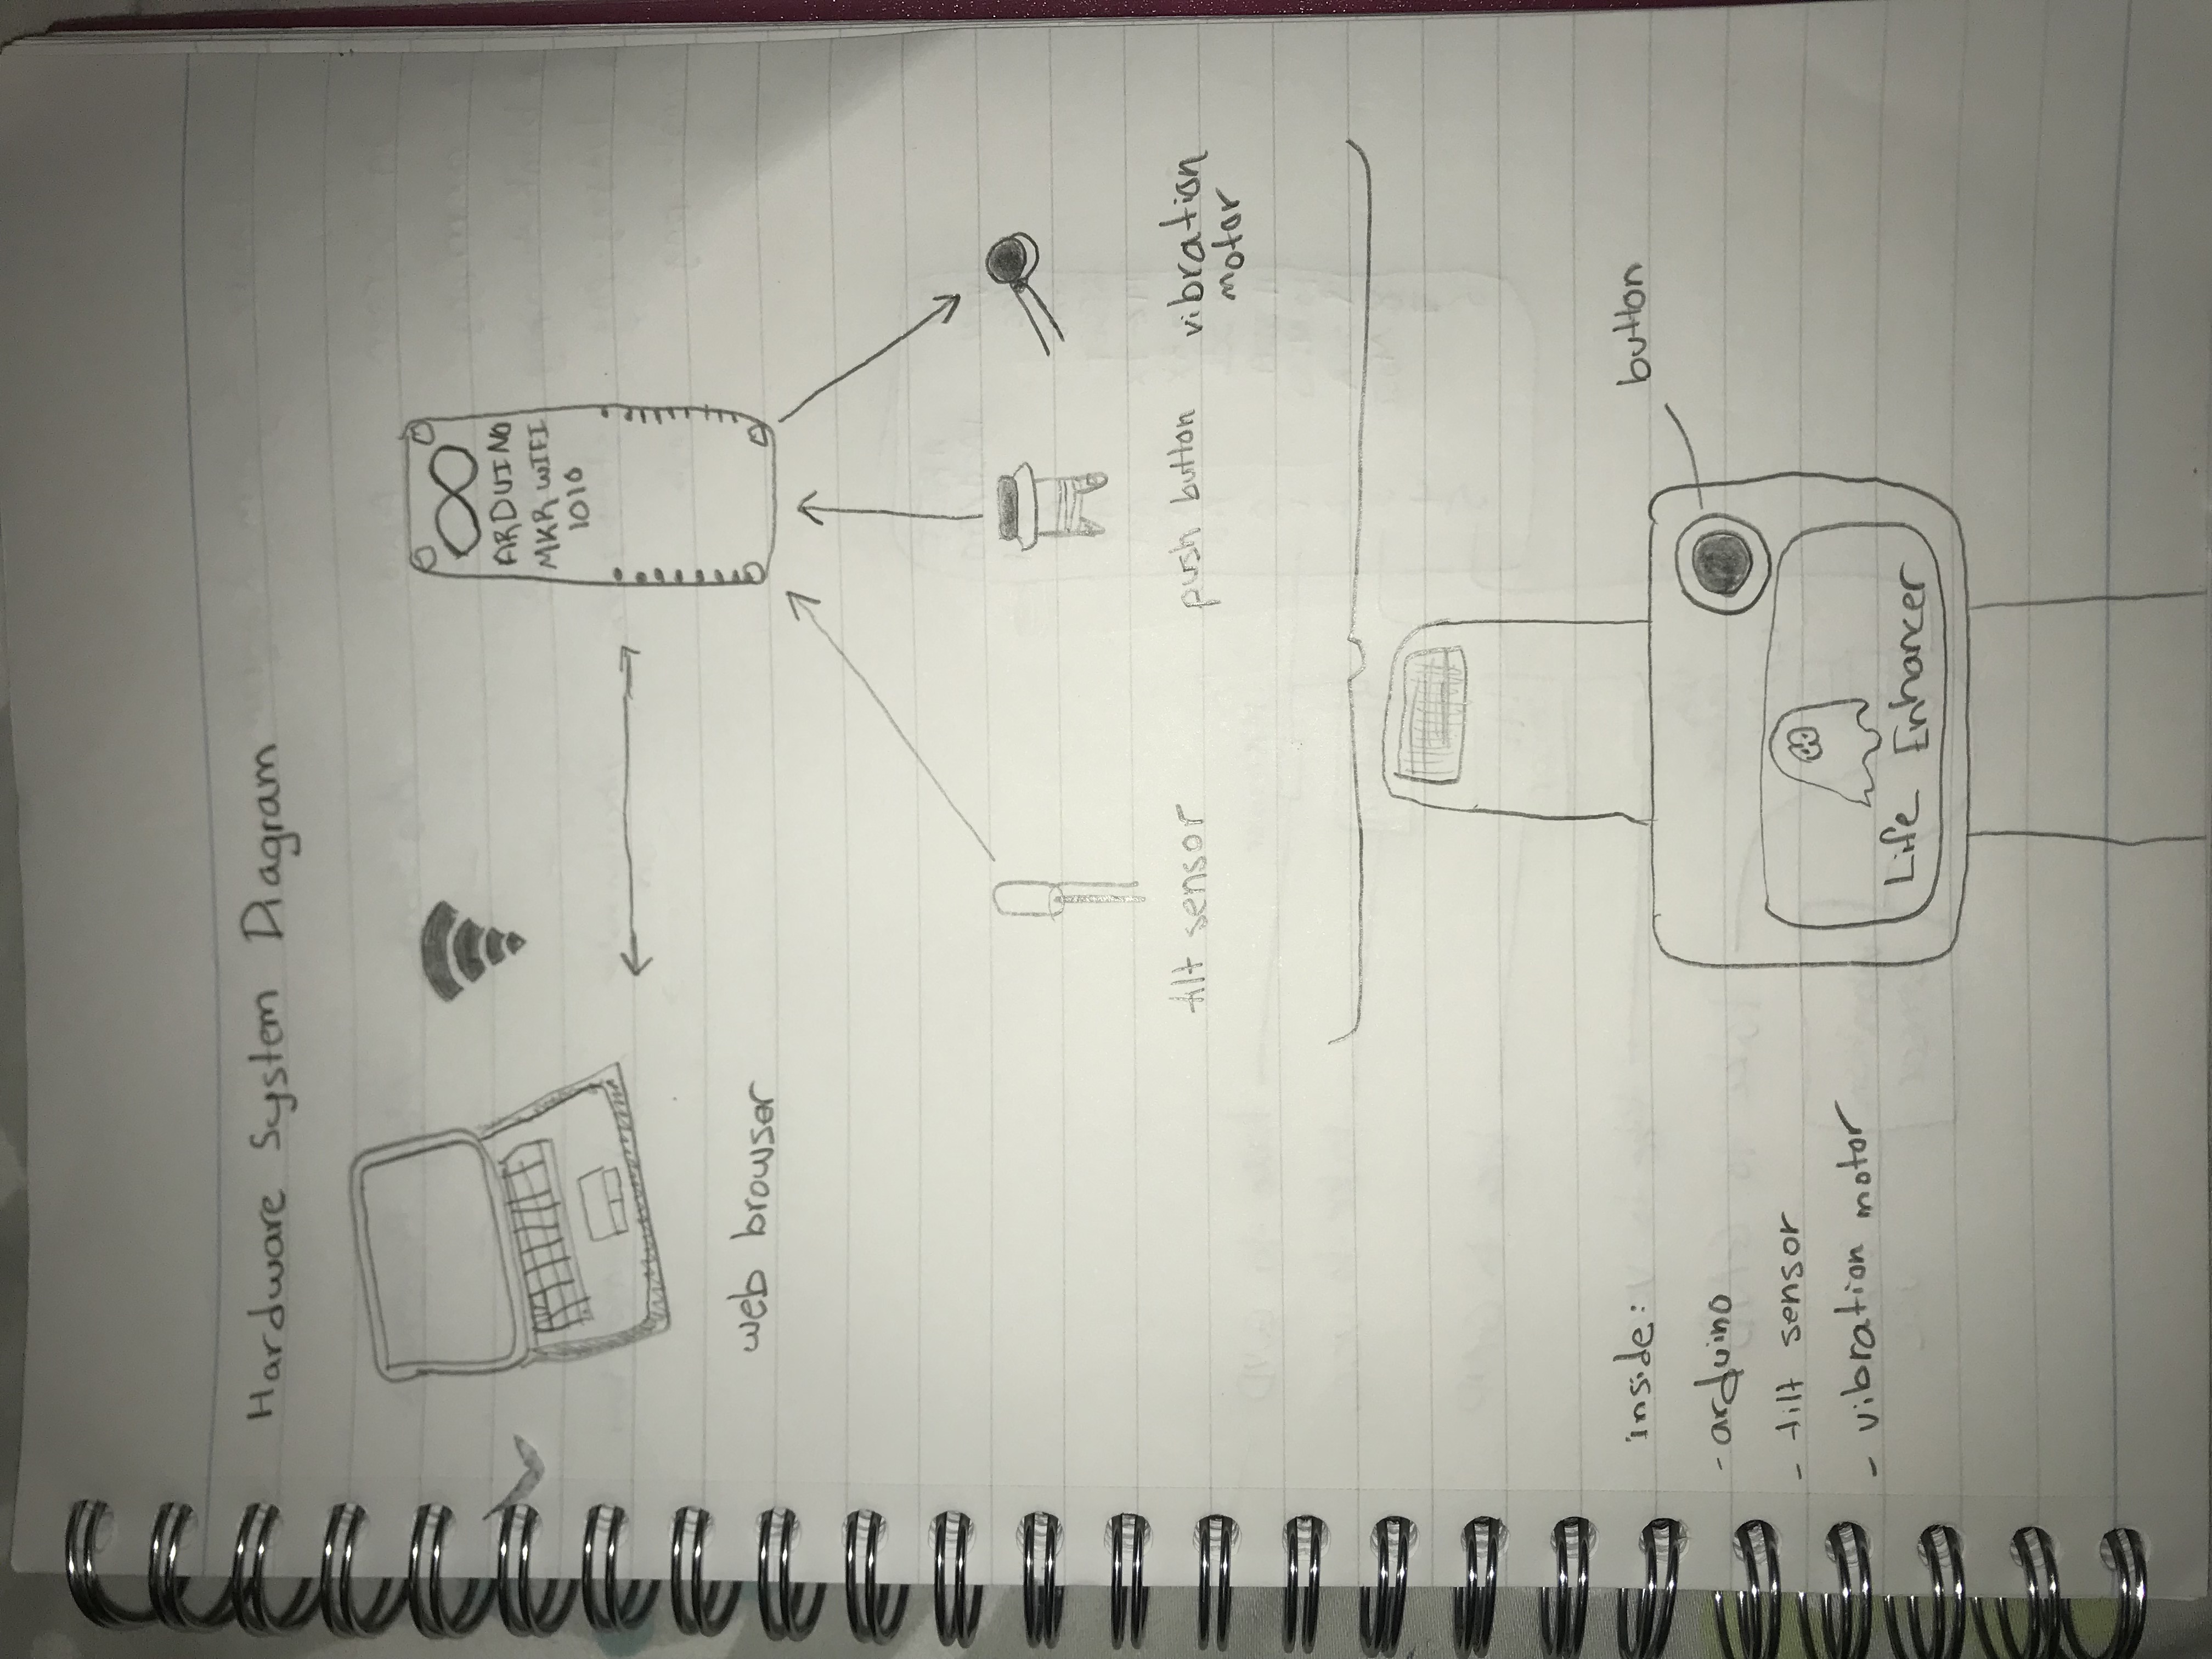 Hardware System Diagram
ARDUINO
MKR WIFI
1010
web browser
tilt sensor
push button
vibration
motor
inside:
- arduino
- tilt sensor
- vibration motor
button
Life Enhancer